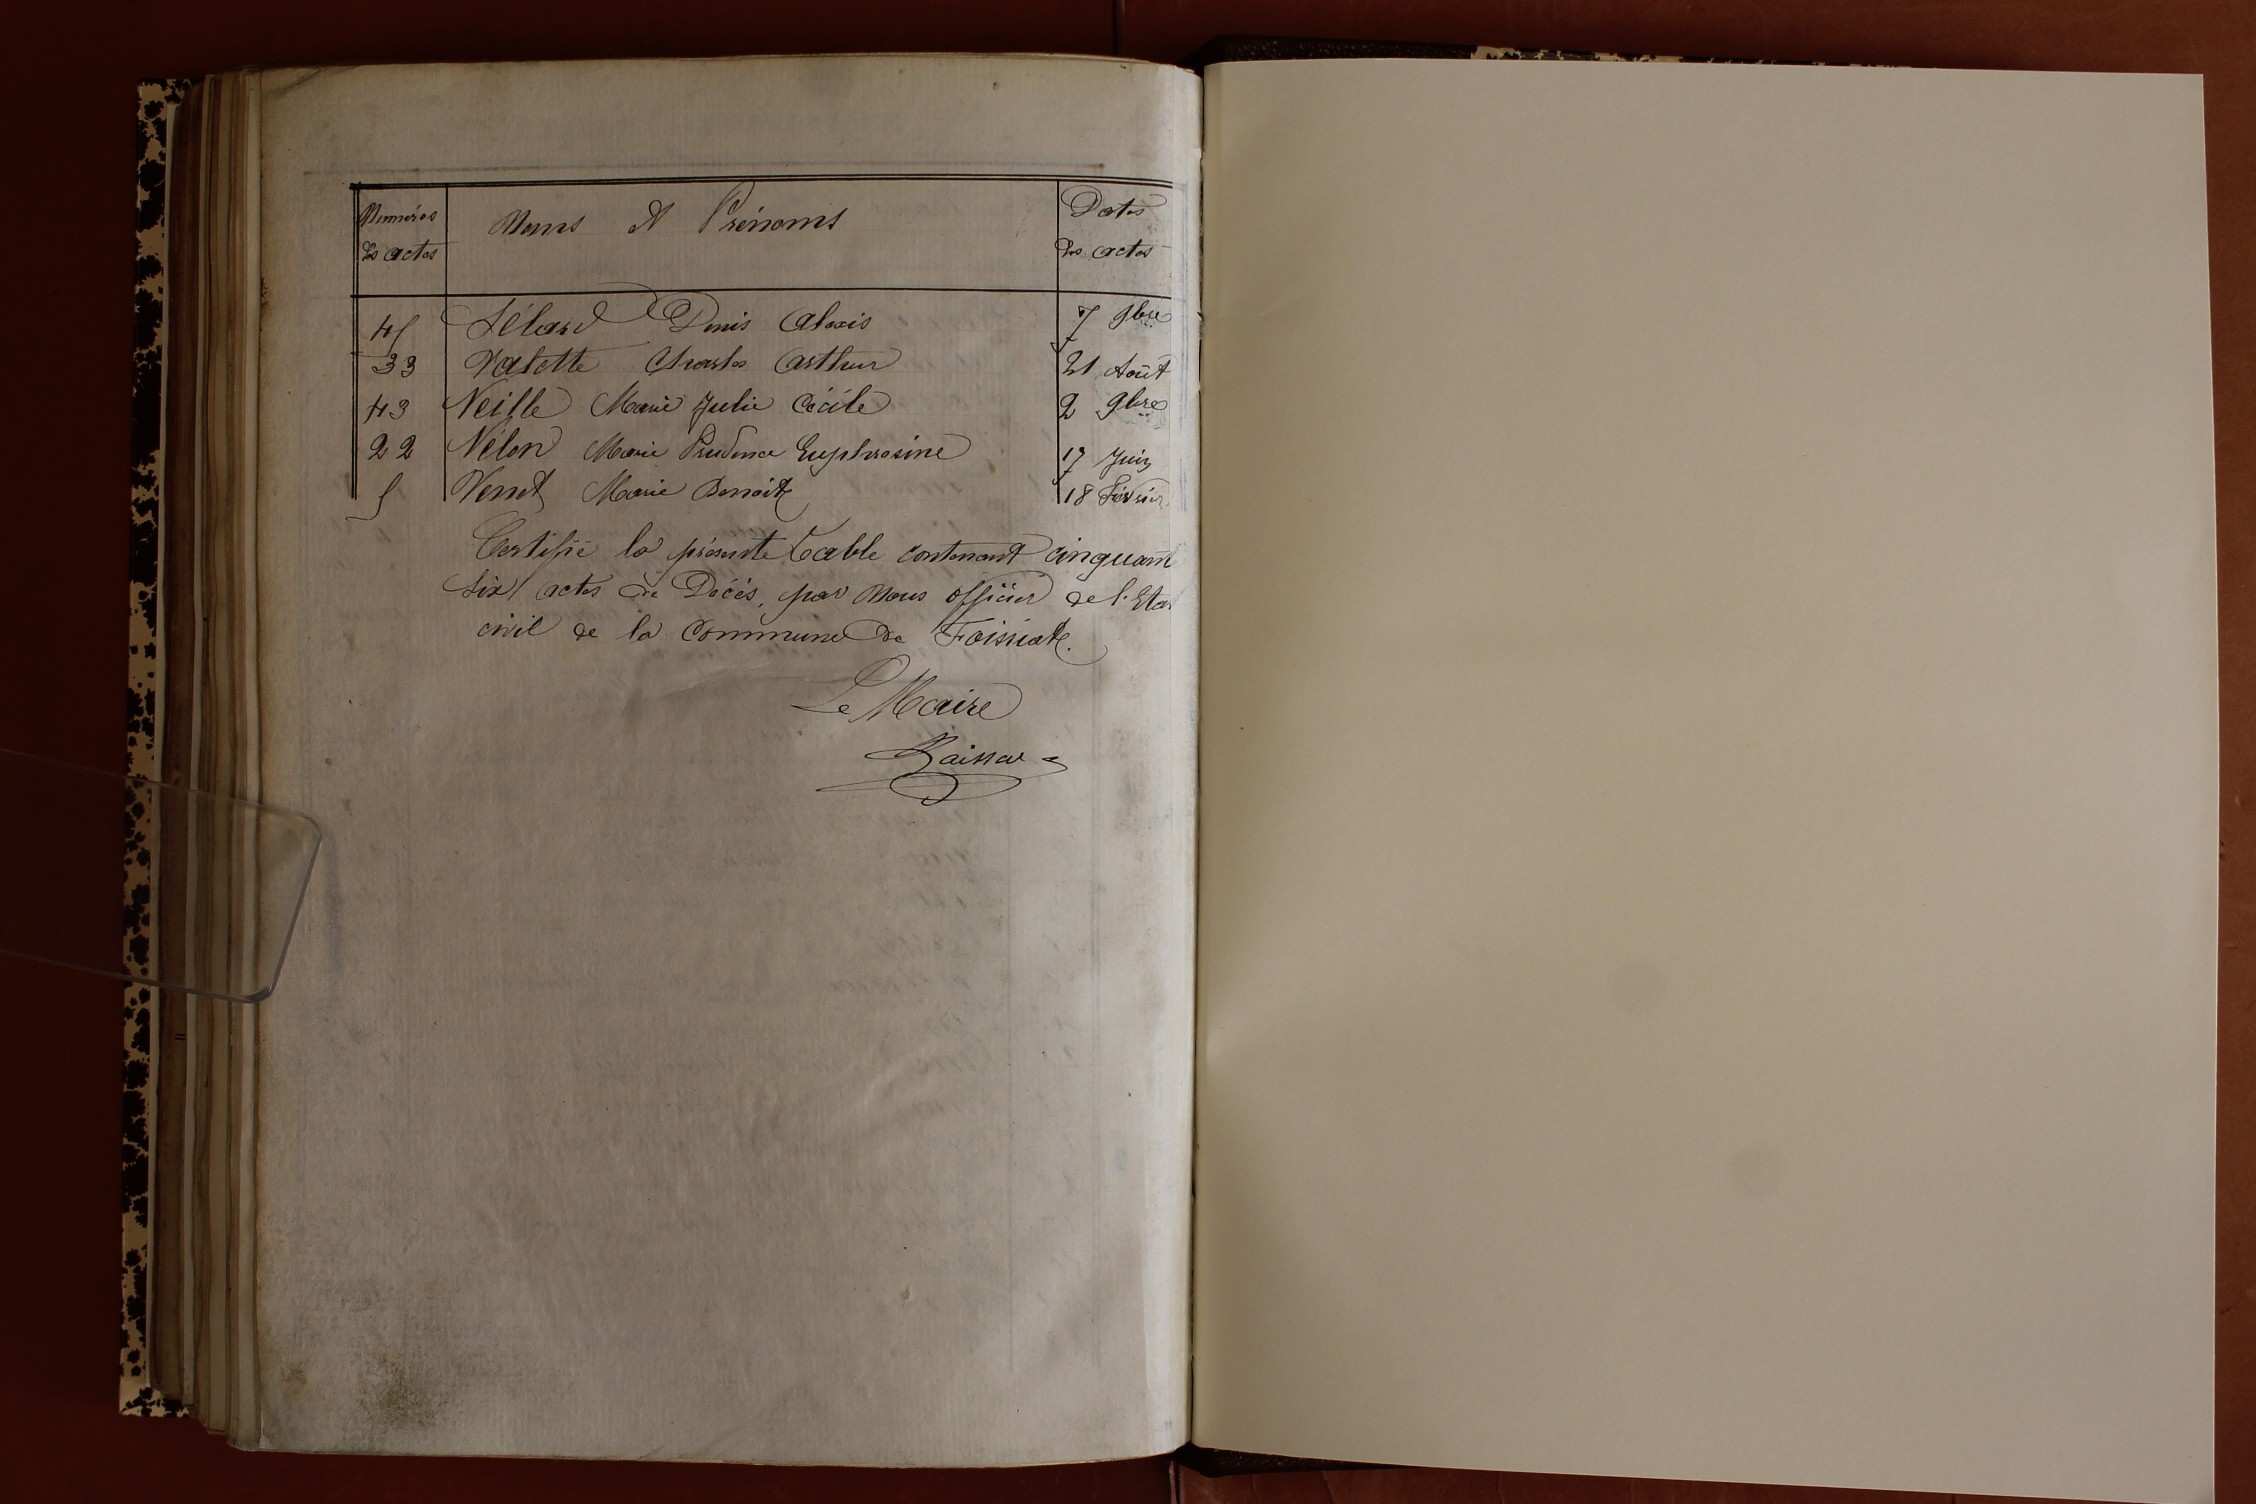 Numéros des actes | Noms et Prénoms | Dates des actes
45 | Sélard Denis Alexis | 7 9bre
33 | Valette Charles Arthur | 21 Août
43 | Veille Marie Julie Cécile | 2 9bre
22 | Vélon Marie Prudence Euphrosine | 17 Juin
5 | Venet Marie Benoite | 18 Février
Certifié la présente Table contenant cinquant
six actes de Décès, par Nous officier de l'Etat
civil de la Commune de Foissiat.
Le Maire